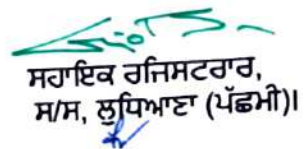 ਸਹਾਇਕ ਰਜਿਸਟਰਾਰ,
ਸ/ਸ, ਲੁਧਿਆਣਾ (ਪੱਛਮੀ)।